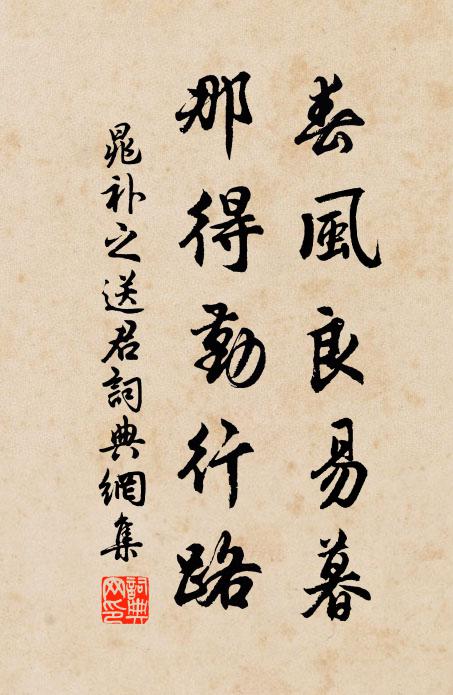 春風良易暮
那得勤行路
晁补之送君詞典網集
詞典網印